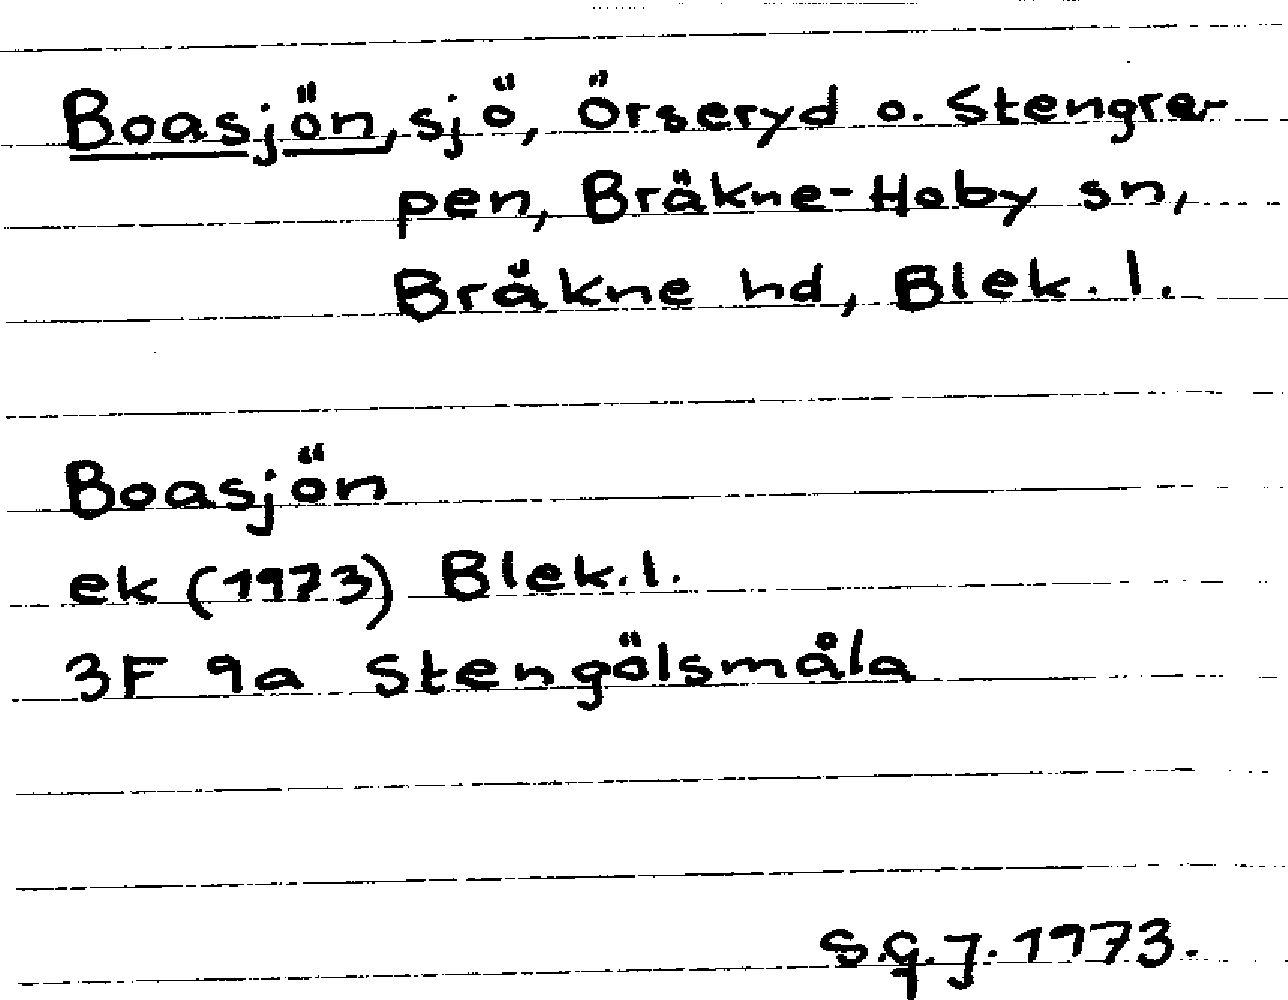 Boasjön, sjö, Örseryd o. Stengre-
pen, Bräkne-Hoby sn,
Bräkne hd, Blek. l.
Boasjön
ek (1973) Blek. l.
3F 9a Stengölsmåla
S.G.J. 1973.